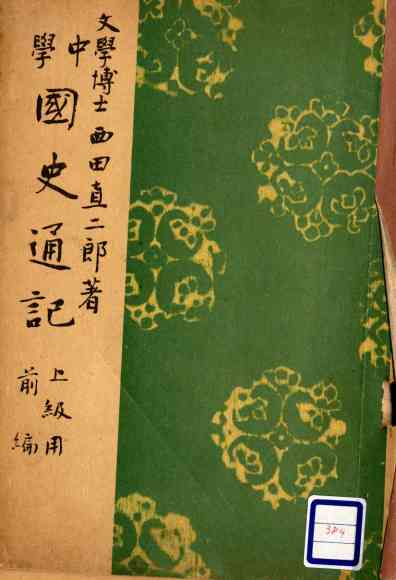 文學博士 西田直二郎著
中學 國史通記
上級用
前編
384